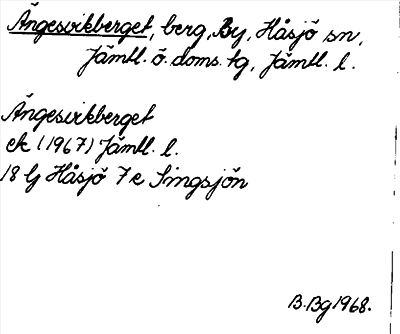 Ängesvikberget, berg, By, Håsjö sn,
Jämtl. ö. doms. tg, Jämtl. l.
Ängesvikberget
ek (1967) Jämtl. l.
18 G Håsjö 7 e Singsjön
B. Bg 1968.